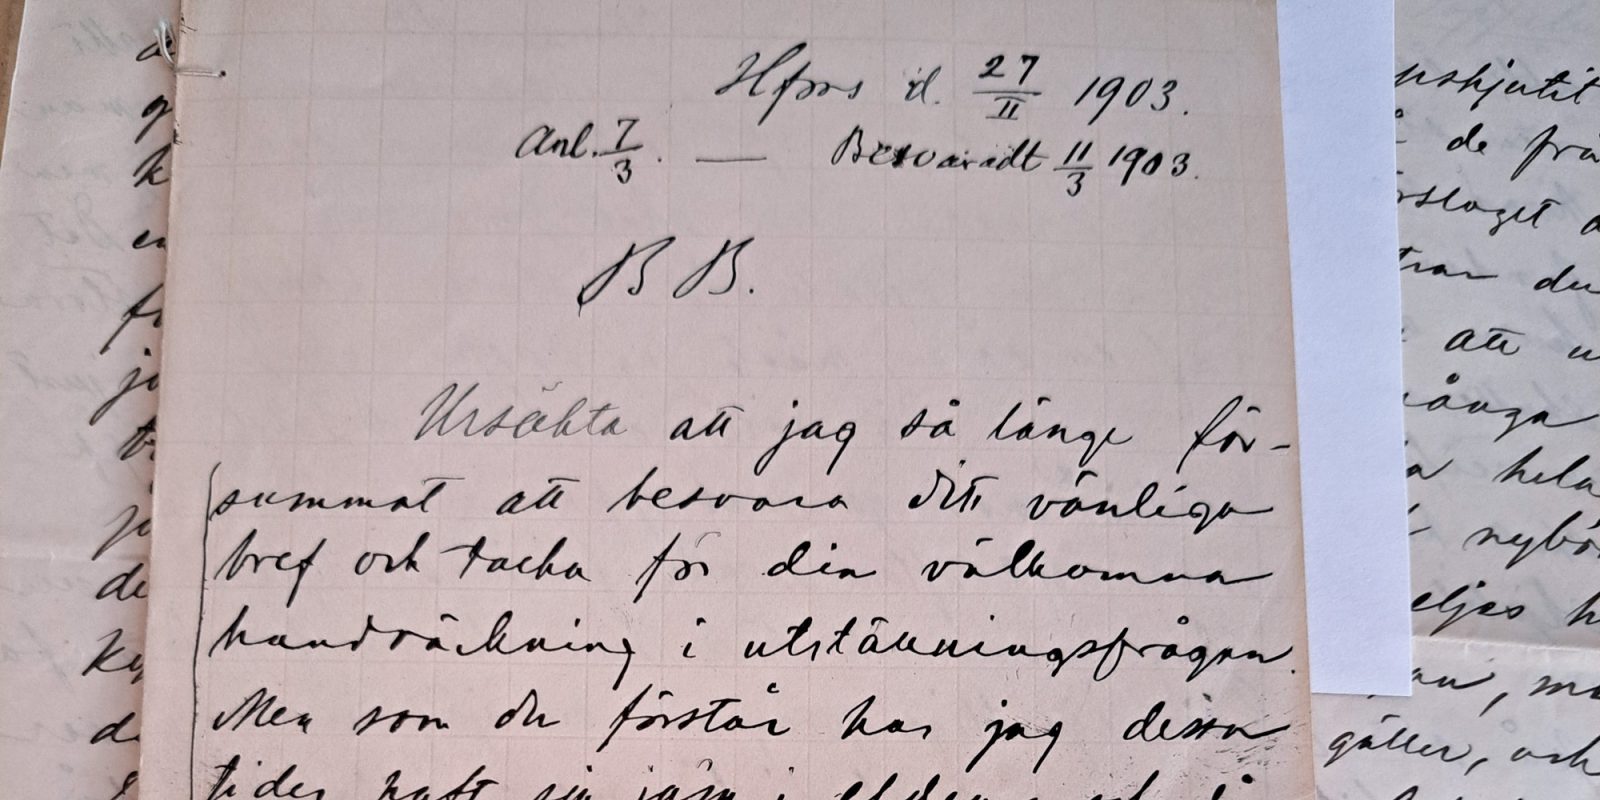 Hfors d. 27/II 1903.
Anl. 7/3. — Besvaradt 11/3 1903.
B B.
Ursäkta att jag så länge för-
summat att besvara ditt vänliga
bref och tacka för din välkomna
handräckning i utställningsfrågan.
Men som du förstår har jag dessa
tider haft
upskjutit
de frå
förslaget
du
att
många
hela
nybör
eljes h
gäller, och